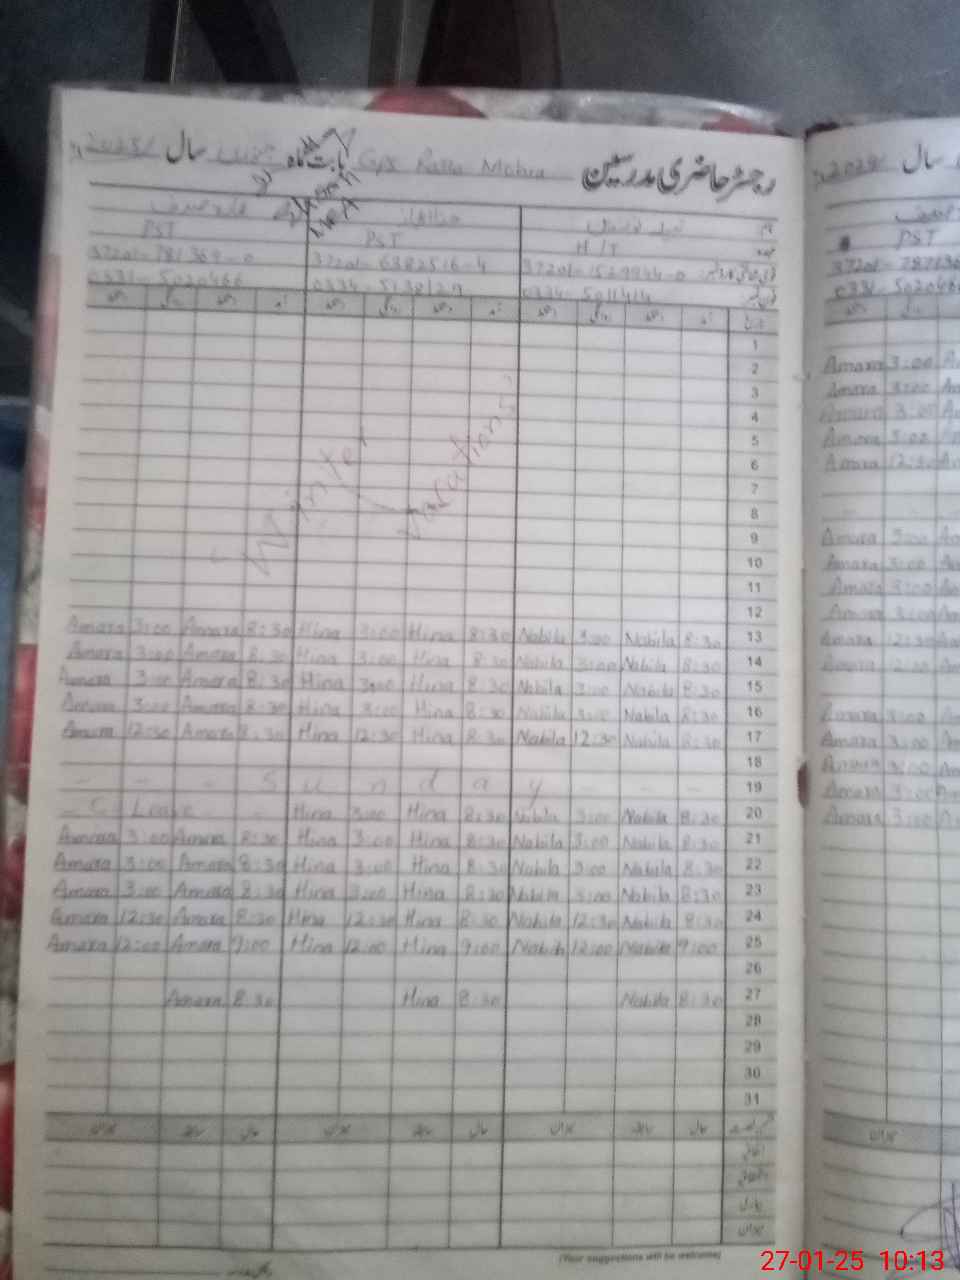 رجسٹر حاضری مدرسین GPS Ralla Mohra بابت ماہ جنوری سال 2025/
H/T PST PST
37201-1529944-0 37201-6382516-4 37201-781369-0
0334-5011414 0334-5138129 0331-5020466
1
2
3
4
5
6
7
8
9
10
11
12
Winter Vacations
Amara 3:00 Amara 8:30 Hina 3:00 Hina 8:30 Nabila 3:00 Nabila 8:30 13
Amara 3:00 Amara 8:30 Hina 3:00 Hina 8:30 Nabila 3:00 Nabila 8:30 14
Amara 3:00 Amara 8:30 Hina 3:00 Hina 8:30 Nabila 3:00 Nabila 8:30 15
Amara 3:00 Amara 8:30 Hina 3:00 Hina 8:30 Nabila 3:00 Nabila 8:30 16
Amara 12:30 Amara 8:30 Hina 12:30 Hina 8:30 Nabila 12:30 Nabila 8:30 17
18
- - - Sunday - - - 19
- C. Leave - Hina 3:00 Hina 8:30 Nabila 3:00 Nabila 8:30 20
Amara 3:00 Amara 8:30 Hina 3:00 Hina 8:30 Nabila 3:00 Nabila 8:30 21
Amara 3:00 Amara 8:30 Hina 3:00 Hina 8:30 Nabila 3:00 Nabila 8:30 22
Amara 3:00 Amara 8:30 Hina 3:00 Hina 8:30 Nabila 3:00 Nabila 8:30 23
Amara 12:30 Amara 8:30 Hina 12:30 Hina 8:30 Nabila 12:30 Nabila 8:30 24
Amara 12:00 Amara 9:00 Hina 12:00 Hina 9:00 Nabila 12:00 Nabila 9:00 25
26
Amara 8:30 Hina 8:30 Nabila 8:30 27
28
29
30
31
میزان سابقہ حال میزان سابقہ حال میزان سابقہ حال
اتفاقی
میزان
(Your suggestions will be welcome)
سال
PST
Amara 3:00
Amara 3:00
Amara 3:00
Amara 3:00
Amara 12:30
Amara 3:00
Amara 3:00
Amara 3:00
Amara 3:00
Amara 12:30
Amara 12:00
Amara 3:00
Amara 3:00
Amara 3:00
Amara 3:00
Amara 3:00
میزان
27-01-25 10:13